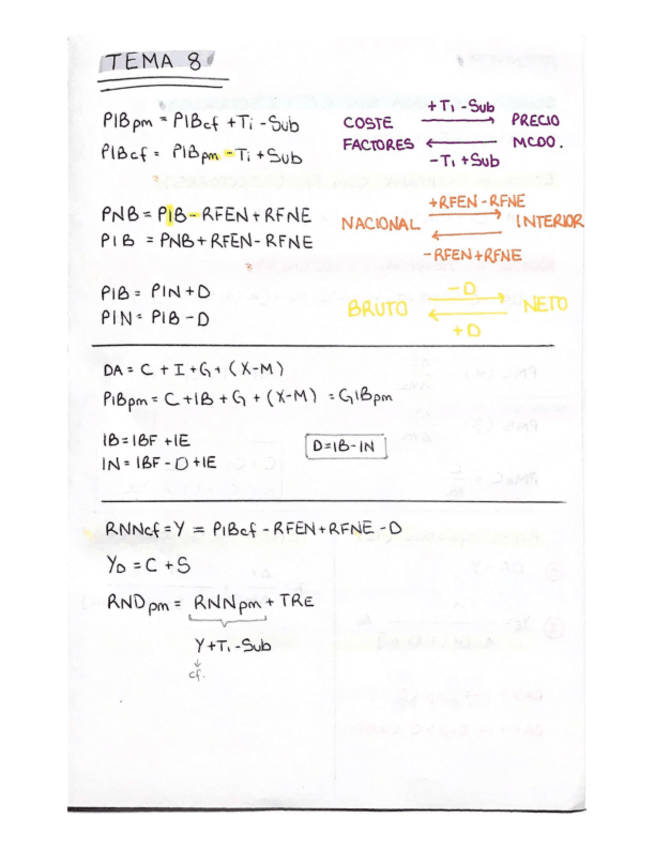 TEMA 8
PIBpm = PIBcf + Ti - Sub
PIBcf = PIBpm - Ti + Sub
+Ti -Sub
COSTE FACTORES
PRECIO MCDO.
-Ti +Sub
PNB = PIB - RFEN + RFNE
PIB = PNB + RFEN - RFNE
+RFEN - RFNE
NACIONAL
INTERIOR
-RFEN + RFNE
PIB = PIN + D
PIN = PIB - D
-D
BRUTO
NETO
+D
DA = C + I + G + (X-M)
PIBpm = C + IB + G + (X-M) = GIBpm
IB = IBF + IE
IN = IBF - D + IE
D = IB - IN
RNNcf = Y = PIBcf - RFEN + RFNE - D
YD = C + S
RNDpm = RNNpm + TRE
Y + Ti - Sub
cf.